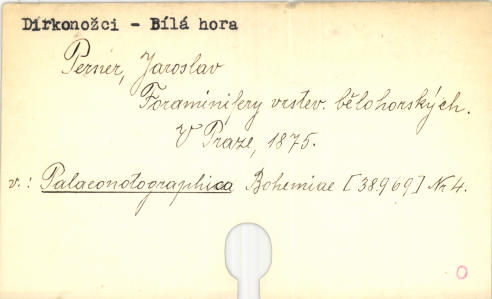 Dírkonožci - Bílá hora
Perner, Jaroslav
Foraminifery vrstev. bělohorských.
V Praze, 1875.
v.: Palaeontographica Bohemiae [38969] Nr 4.
0